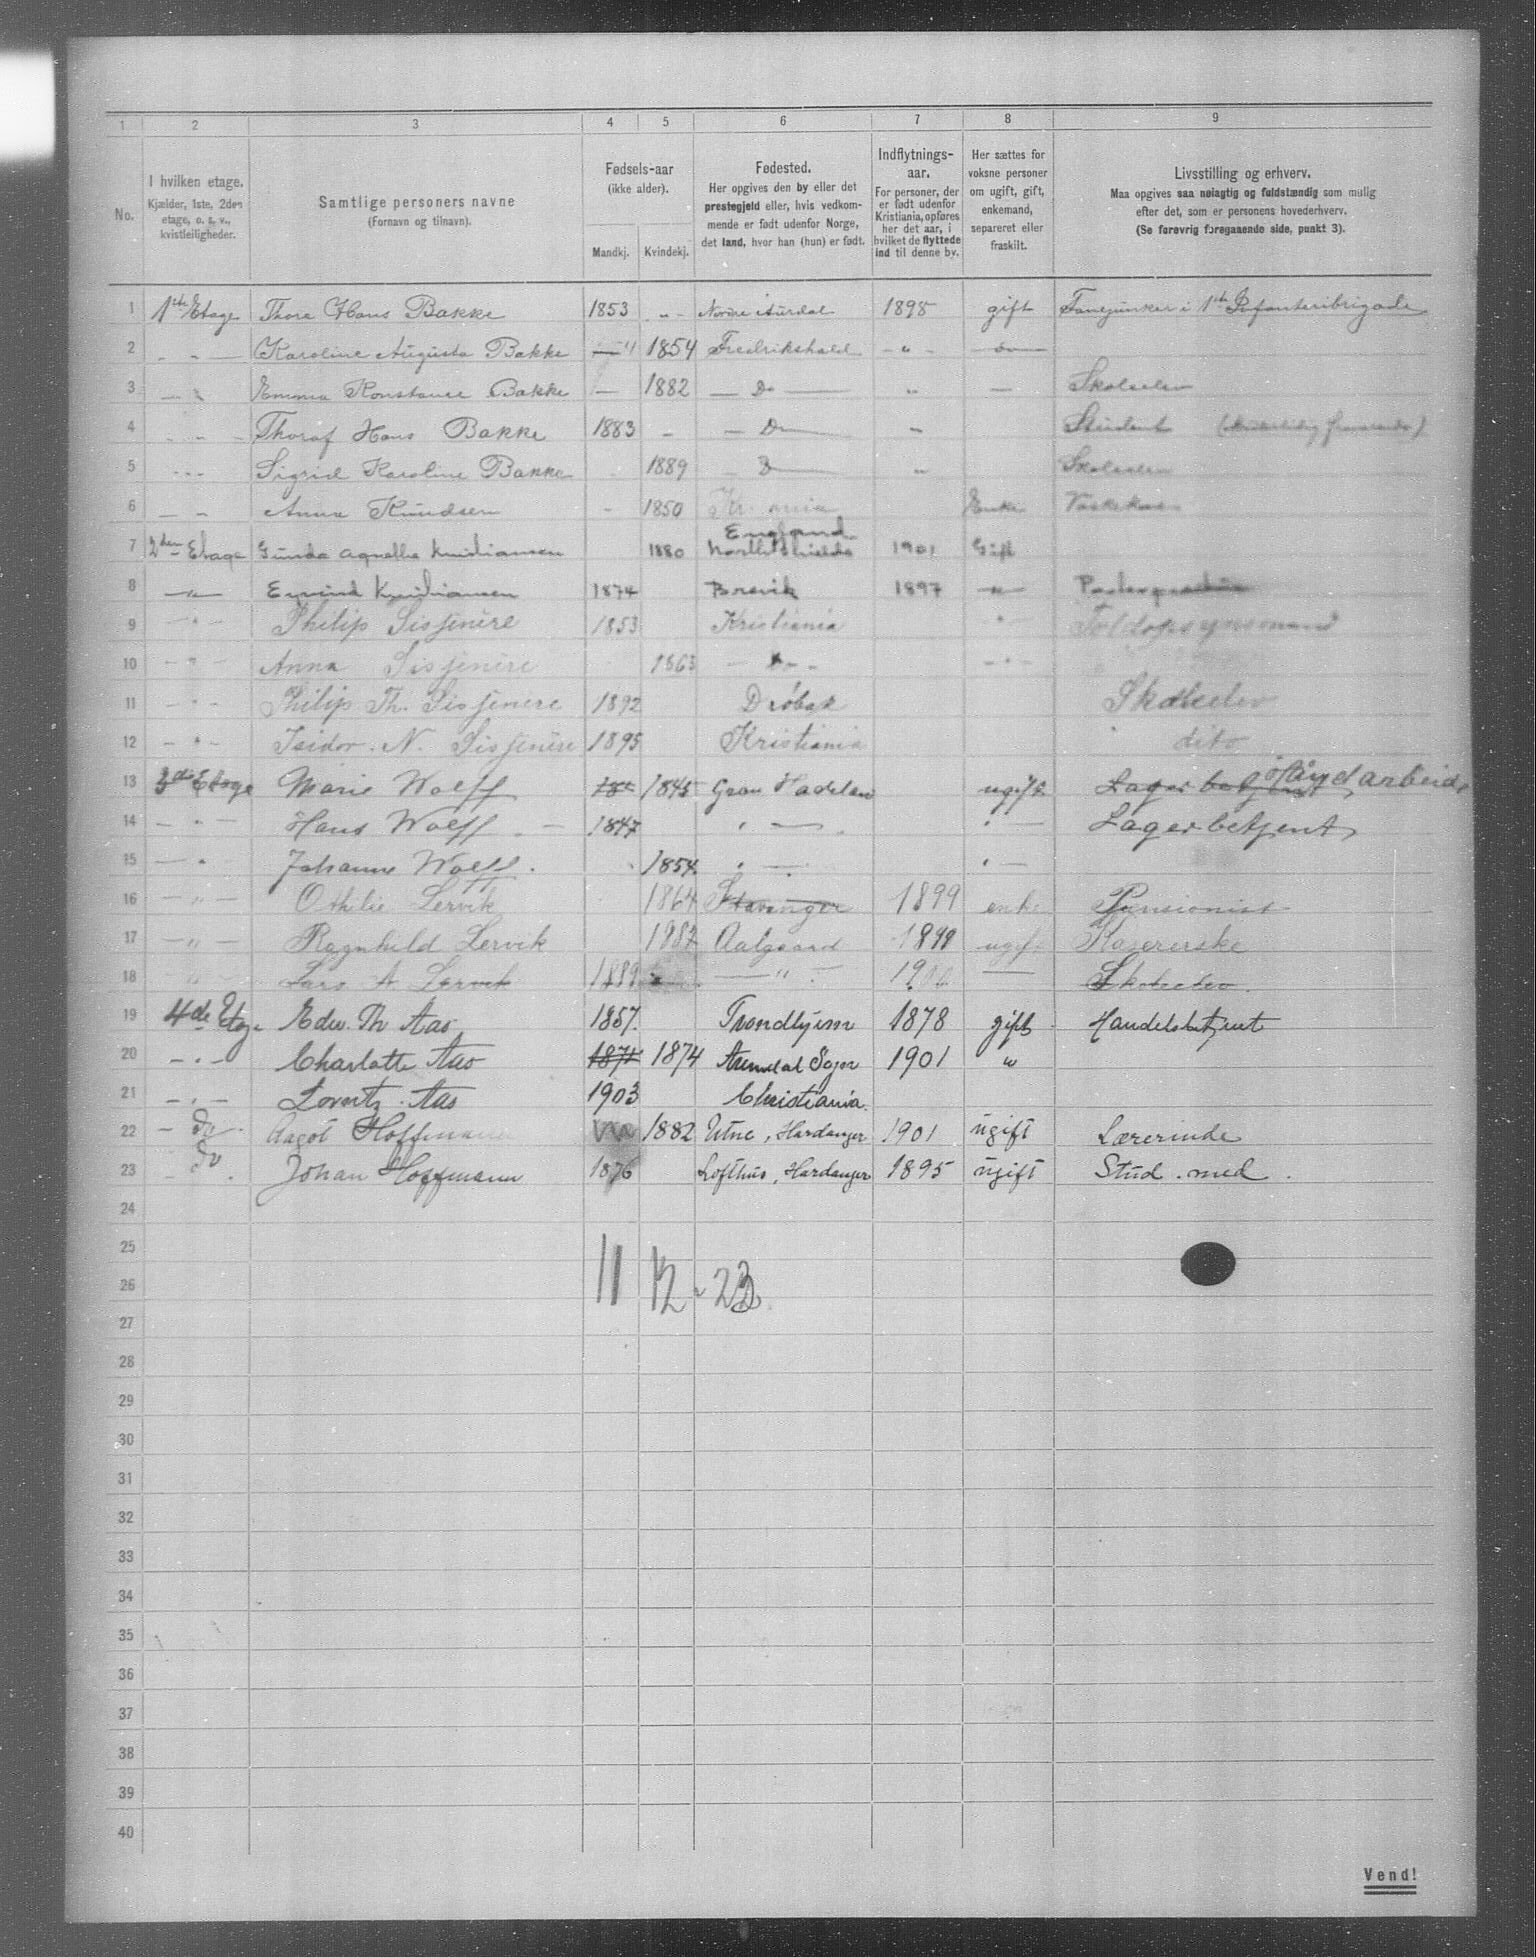 1 2 3 4 5 6 7 8 9
No.
I hvilken etage. Kjælder, 1ste, 2den etage, o. s. v., kvistleiligheder.
Samtlige personers navne (Fornavn og tilnavn).
Fødsels-aar (ikke alder). Mandkj. Kvindekj.
Fødested. Her opgives den by eller det prestegjeld eller, hvis vedkommende er født udenfor Norge, det land, hvor han (hun) er født.
Indflytnings-aar. For personer, der er født udenfor Kristiania, opføres her det aar, i hvilket de flyttede ind til denne by.
Her sættes for voksne personer om ugift, gift, enkemand, separeret eller fraskilt.
Livsstilling og erhverv. Maa opgives saa nøiagtig og fuldstændig som mulig efter det, som er personens hovederhverv. (Se forøvrig foregaaende side, punkt 3).
1 1ste Etage Thore Hans Bakke 1853 -"- Nordre Aurdal 1898 gift Fanejunker i 1ste Infanteribrigade
2 - " - Karoline Augusta Bakke " 1854 Fredrikshald - " - do
3 - " Emma Konstanse Bakke — 1882 — Do — " — Skoleelev
4 - " - Thoraf Hans Bakke 1883 - — D — " Student
5 - " - Sigrid Karoline Bakke 1889 — D — " Skoleelev
6 - " Anna Knudsen - 1850 Kr.ania Enke
7 2den Etage Gunda Agnethe Kristiansen 1880 England North Shields 1901 Gift
8 - " - Eyvind Kristiansen 1874 Brevik 1897 - " -
9 - " - Philip Sissenére 1853 Kristiania " Toldopsynsmand
10 - " - Anna Sissenére 1863 - " -
11 - " - Philip Th. Sissenére 1892 Drøbak Skoleelev
12 - " - Isidor. N. Sissenére 1895 Kristiania dito
13 3die Etage Marie Wolff 1845 Gran Hadeland ugift Lagerbetjent Håndarbeide
14 - " - Hans Wolff 1847 " — " — Lagerbetjent
15 — " Johanne Wolff. 1854. " — " —
16 - " - Othilie Lervik 1864 Stavanger 1899 enke Pensionist
17 - " - Ragnhild Lervik 1882 Aalgaard 1899 ugift Kasererske
18 " Lars A Lervik 1889 — " — — Skoleelev.
19 4de Etage Edw. Th Aas 1857. Trondhjem 1878 gift Handelsbetjent
20 - " - Charlotte Aas 1874 1874 Arendal Sogn 1901 "
21 - " - Lorentz. Aas 1903 Christiania.
22 - do - Aagot Hoffmann 1882 Utne, Hardanger 1901 ugift Lærerinde
23 do Johan Hoffmann 1876 Lofthus, Hardanger 1895 ugift Stud. med.
24
25
26 11 12 - 23
27
28
29
30
31
32
33
34
35
36
37
38
39
40
Vend!